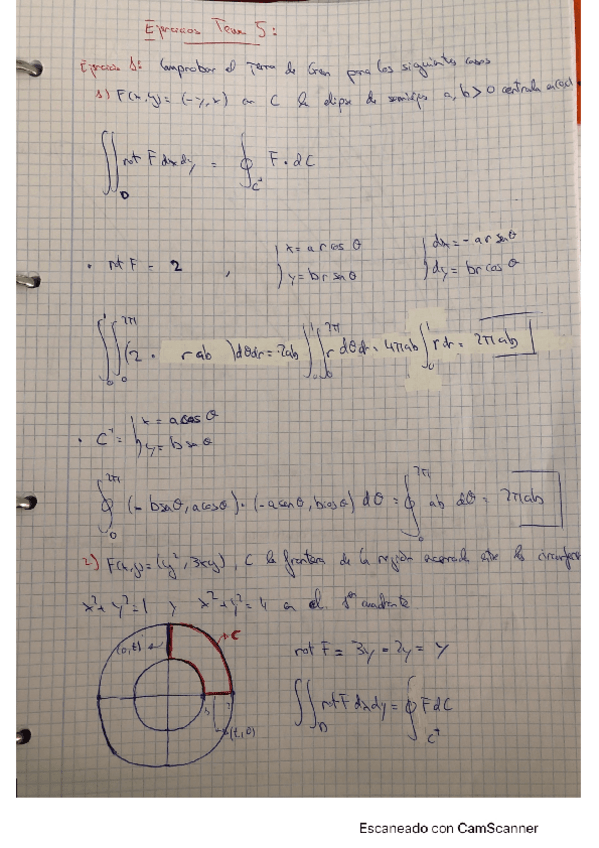 Ejercicios Tema 5:
Ejercicio 1: Comprobar el Teorema de Green para los siguientes casos
1) F(x,y) = (-y,x) en C la elipse de semiejes a, b > 0 centrada en
∬_D rot F dx dy = ∮_{C⁺} F · dC
• rot F = 2 , { x = a r cos θ { dx = -a r sen θ
y = b r sen θ dy = b r cos θ
∫₀¹∫₀^{2π} (2 · r ab) dθ dr = 2ab ∫₀¹∫₀^{2π} r dθ dr = 4πab ∫₀¹ r dr = 2πab
• C⁺ = { x = a cos θ
y = b sen θ
∮₀^{2π} (-b sen θ, a cos θ) · (-a sen θ, b cos θ) dθ = ∮₀^{2π} ab dθ = 2πab
2) F(x,y) = (y², 3xy), C la frontera de la región encerrada entre las circunfer
x² + y² = 1 y x² + y² = 4 en el 1er cuadrante
(0,t) C
rot F = 3y - 2y = y
1 2
∬_D rot F dx dy = ∮_{C⁺} F dC
(t,0)
Escaneado con CamScanner